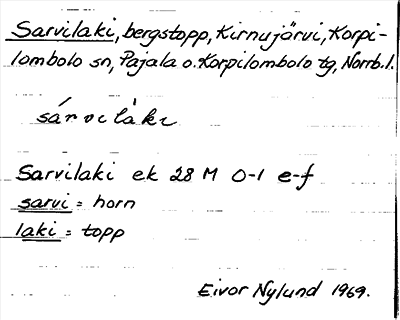 Sarvilaki, bergstopp, Kirnujärvi, Korpi-
lombolo sn, Pajala o. Korpilombolo tg, Norrb. l.
sárvilàkı
Sarvilaki ek 28 M 0-1 e-f
sarvi = horn
laki = topp
Eivor Nylund 1969.